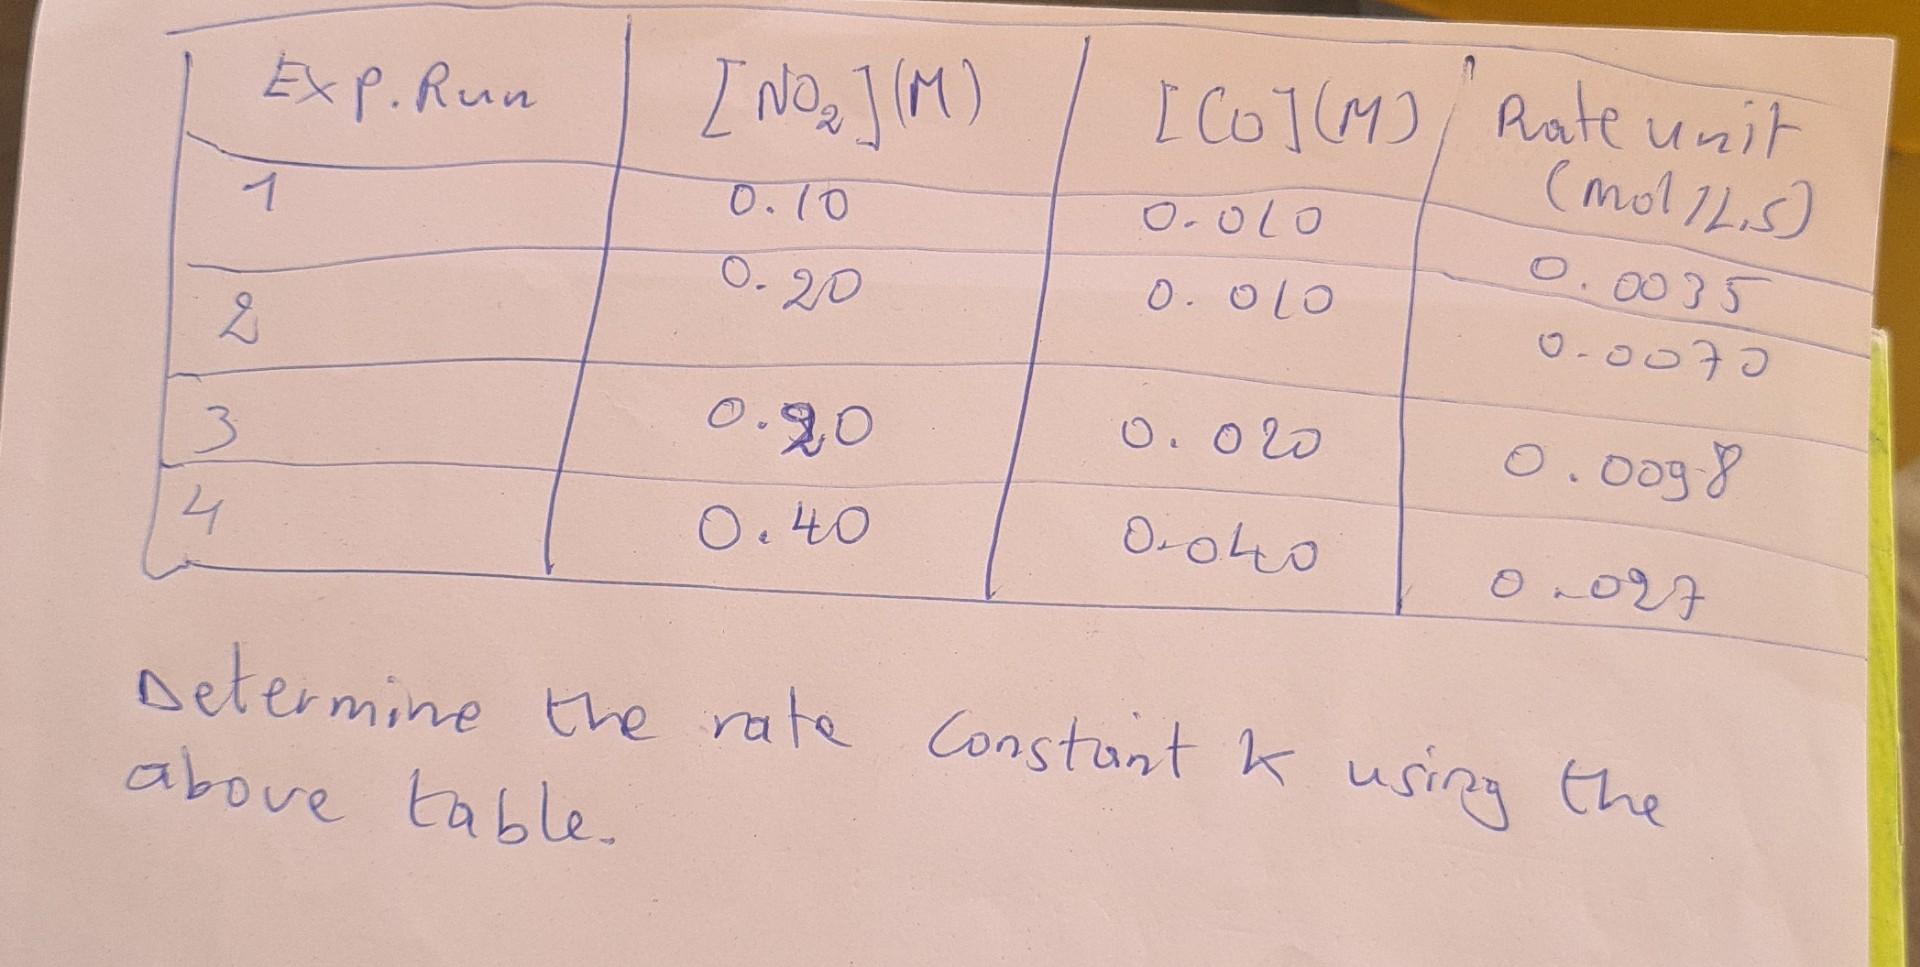 Exp. Run [NO₂](M) [CO](M) Rate unit (mol/L.s)
1 0.10 0.010 0.0035
2 0.20 0.010 0.0070
3 0.20 0.020 0.0098
4 0.40 0.040 0.027
Determine the rate constant k using the
above table.